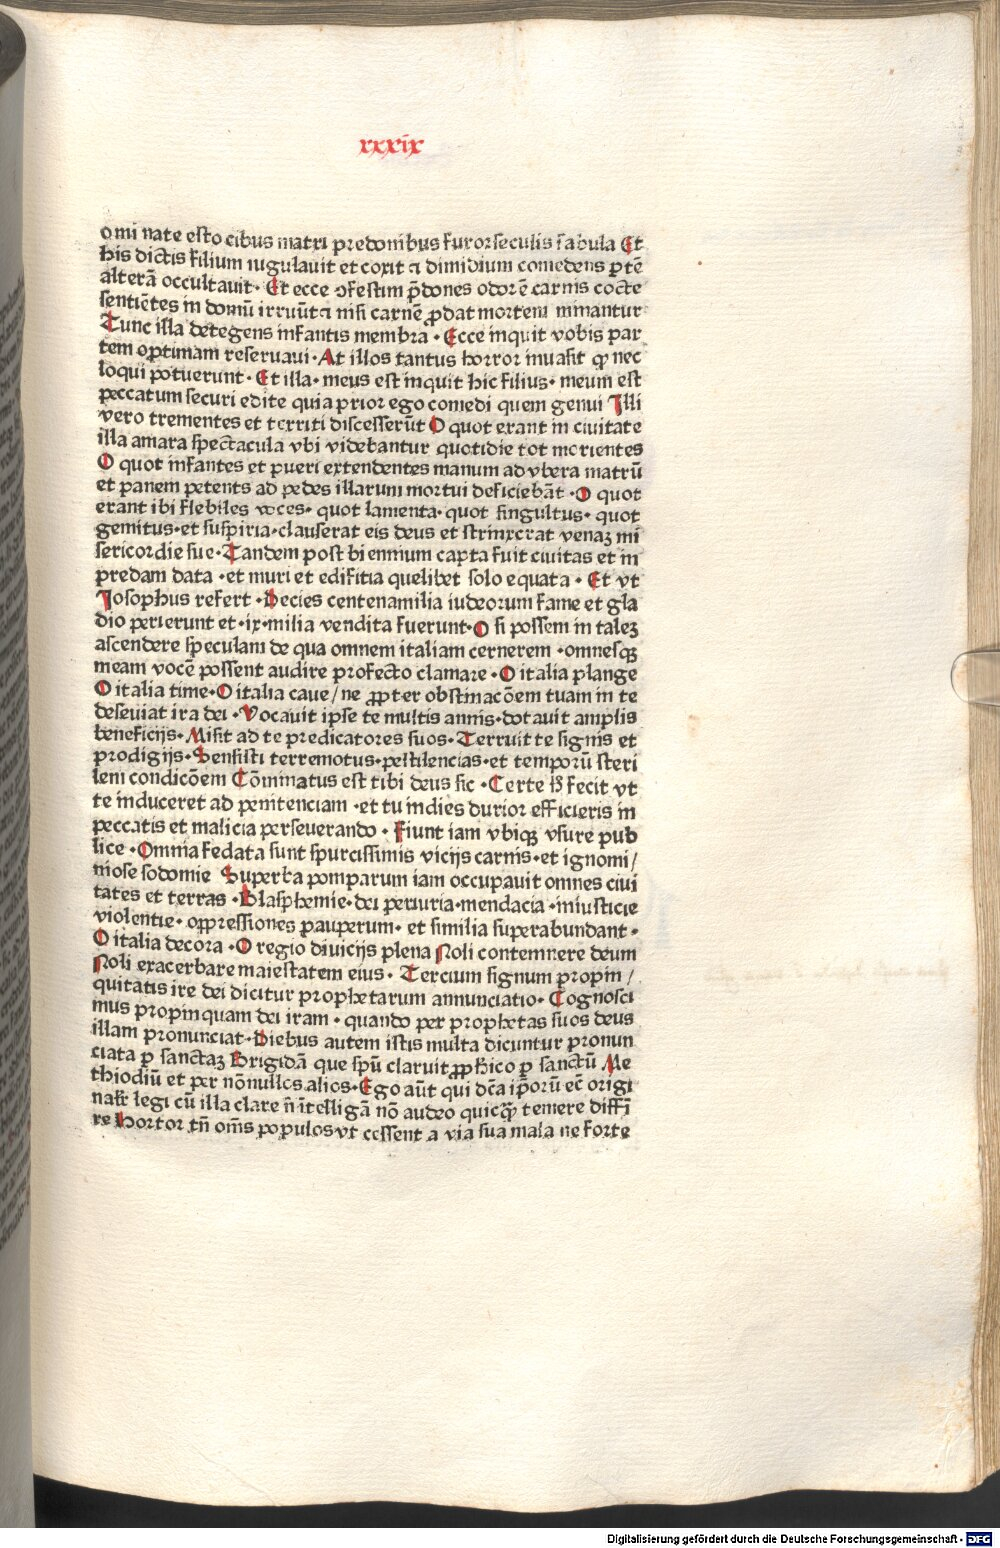 xxxix
o mi nate esto cibus matri predonibus furor seculis fabula Et
his dictis filium iugulauit et coxit ⁊ dimidium comedens ꝑtē
alterā occultauit· Et ecce ↄfestim p̄dones odorē carnis cocte
sentiētes in domū irruūt ⁊ nisi carnē ꝓdat mortem minantur
Tunc illa detegens infantis membra · Ecce inquit vobis par
tem optimam reseruaui· At illos tantus horror inuasit ꝙ nec
loqui potuerunt · Et illa· meus est inquit hic filius· meum est
peccatum securi edite quia prior ego comedi quem genui Illi
vero trementes et territi discesserūt O quot erant in ciuitate
illa amara spectacula vbi videbantur quotidie tot morientes
O quot infantes et pueri extendentes manum ad vbera matrū
et panem petents ad pedes illarum mortui deficiebāt · O quot
erant ibi flebiles voces· quot lamenta· quot singultus· quot
gemitus· et suspiria· clauserat eis deus et strinxerat venaꝫ mi
sericordie sue· Tandem post biennium capta fuit ciuitas et in
predam data · et muri et edifitia quelibet solo equata · Et vt
Iosophus refert · Decies centenamilia iudeorum fame et gla
dio perierunt et ·ix· milia vendita fuerunt· O si possem in taleꝫ
ascendere speculam de qua omnem italiam cernerem · omnesqꝫ
meam vocē possent audire profecto clamare · O italia plange
O italia time· O italia caue/ ne ꝓpter obstinacōem tuam in te
deseuiat ira dei · Vocauit ipse te multis annis· dotauit amplis
beneficijs· Misit ad te predicatores suos· Terruit te signis et
prodigijs· Sensisti terremotus· pestilencias· et temporū steri
lem condicōem Cōminatus est tibi deus sic · Certe hͦ fecit vt
te induceret ad penitenciam · et tu indies durior efficieris in
peccatis et malicia perseuerando · Fiunt iam vbiqꝫ vsure pub
lice · Omnia fedata sunt spurcissimis vicijs carnis· et ignomi/
niose sodomie Superba pomparum iam occupauit omnes ciui
tates et terras · Blasphemie· dei periuria· mendacia · iniusticie
violentie· oppressiones pauperum· et similia superabundant ·
O italia decora · O regio diuicijs plena Noli contemnere deum
Noli exacerbare maiestatem eius · Tercium signum propin/
quitatis ire dei dicitur prophetarum annunciatio· Cognosci
mus propinquam dei iram · quando per prophetas suos deus
illam pronunciat· Diebus autem istis multa dicuntur pronun
ciata ꝑ sanctaꝫ Brigidā que spū claruit ꝓphico ꝑ sanctū Me
thiodiū et per nōnullos alios· Ego aūt qui dc̄a ip̄orū ec̄ origi
nalr̄ legi cū illa clare n̄ ītelligā nō audeo quicꝙ̄ temere diffi
re Hortor tn̄ om̄s populos vt cessent a via sua mala ne forte
Digitalisierung gefördert durch die Deutsche Forschungsgemeinschaft - DFG